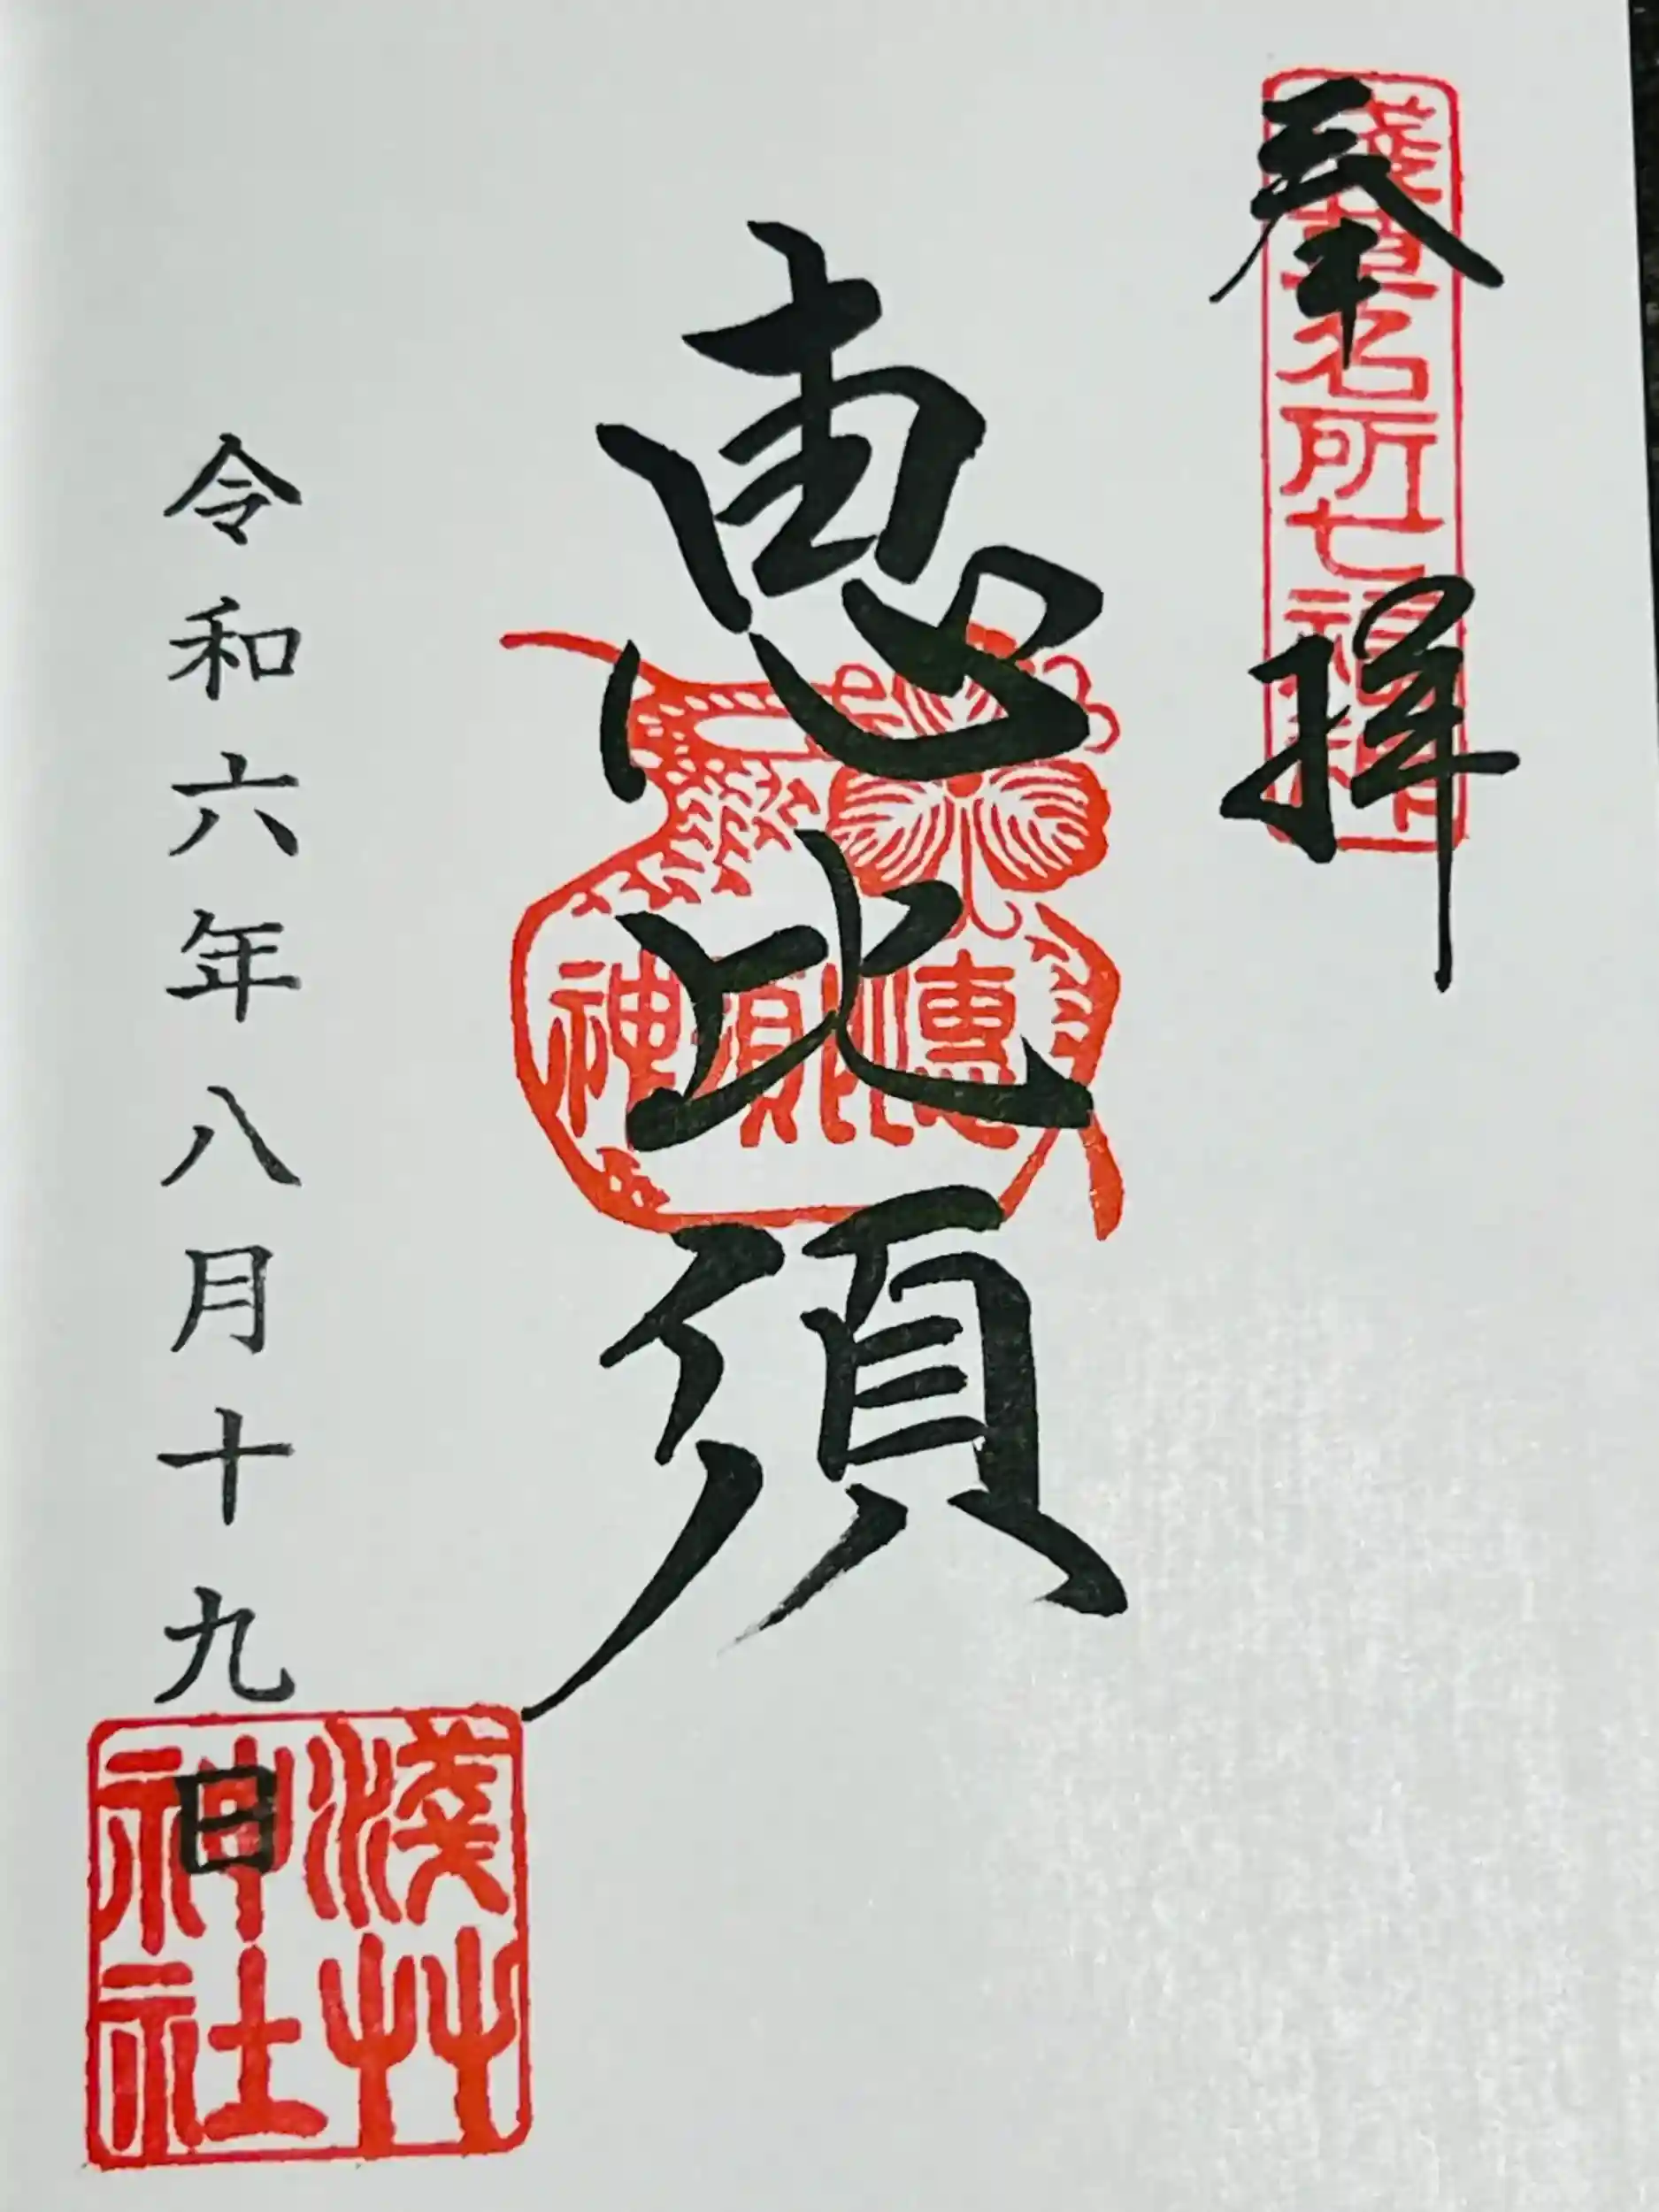 奉拝
淺草名所七福神
恵比須
恵比須神
令和六年八月十九日
淺艸神社